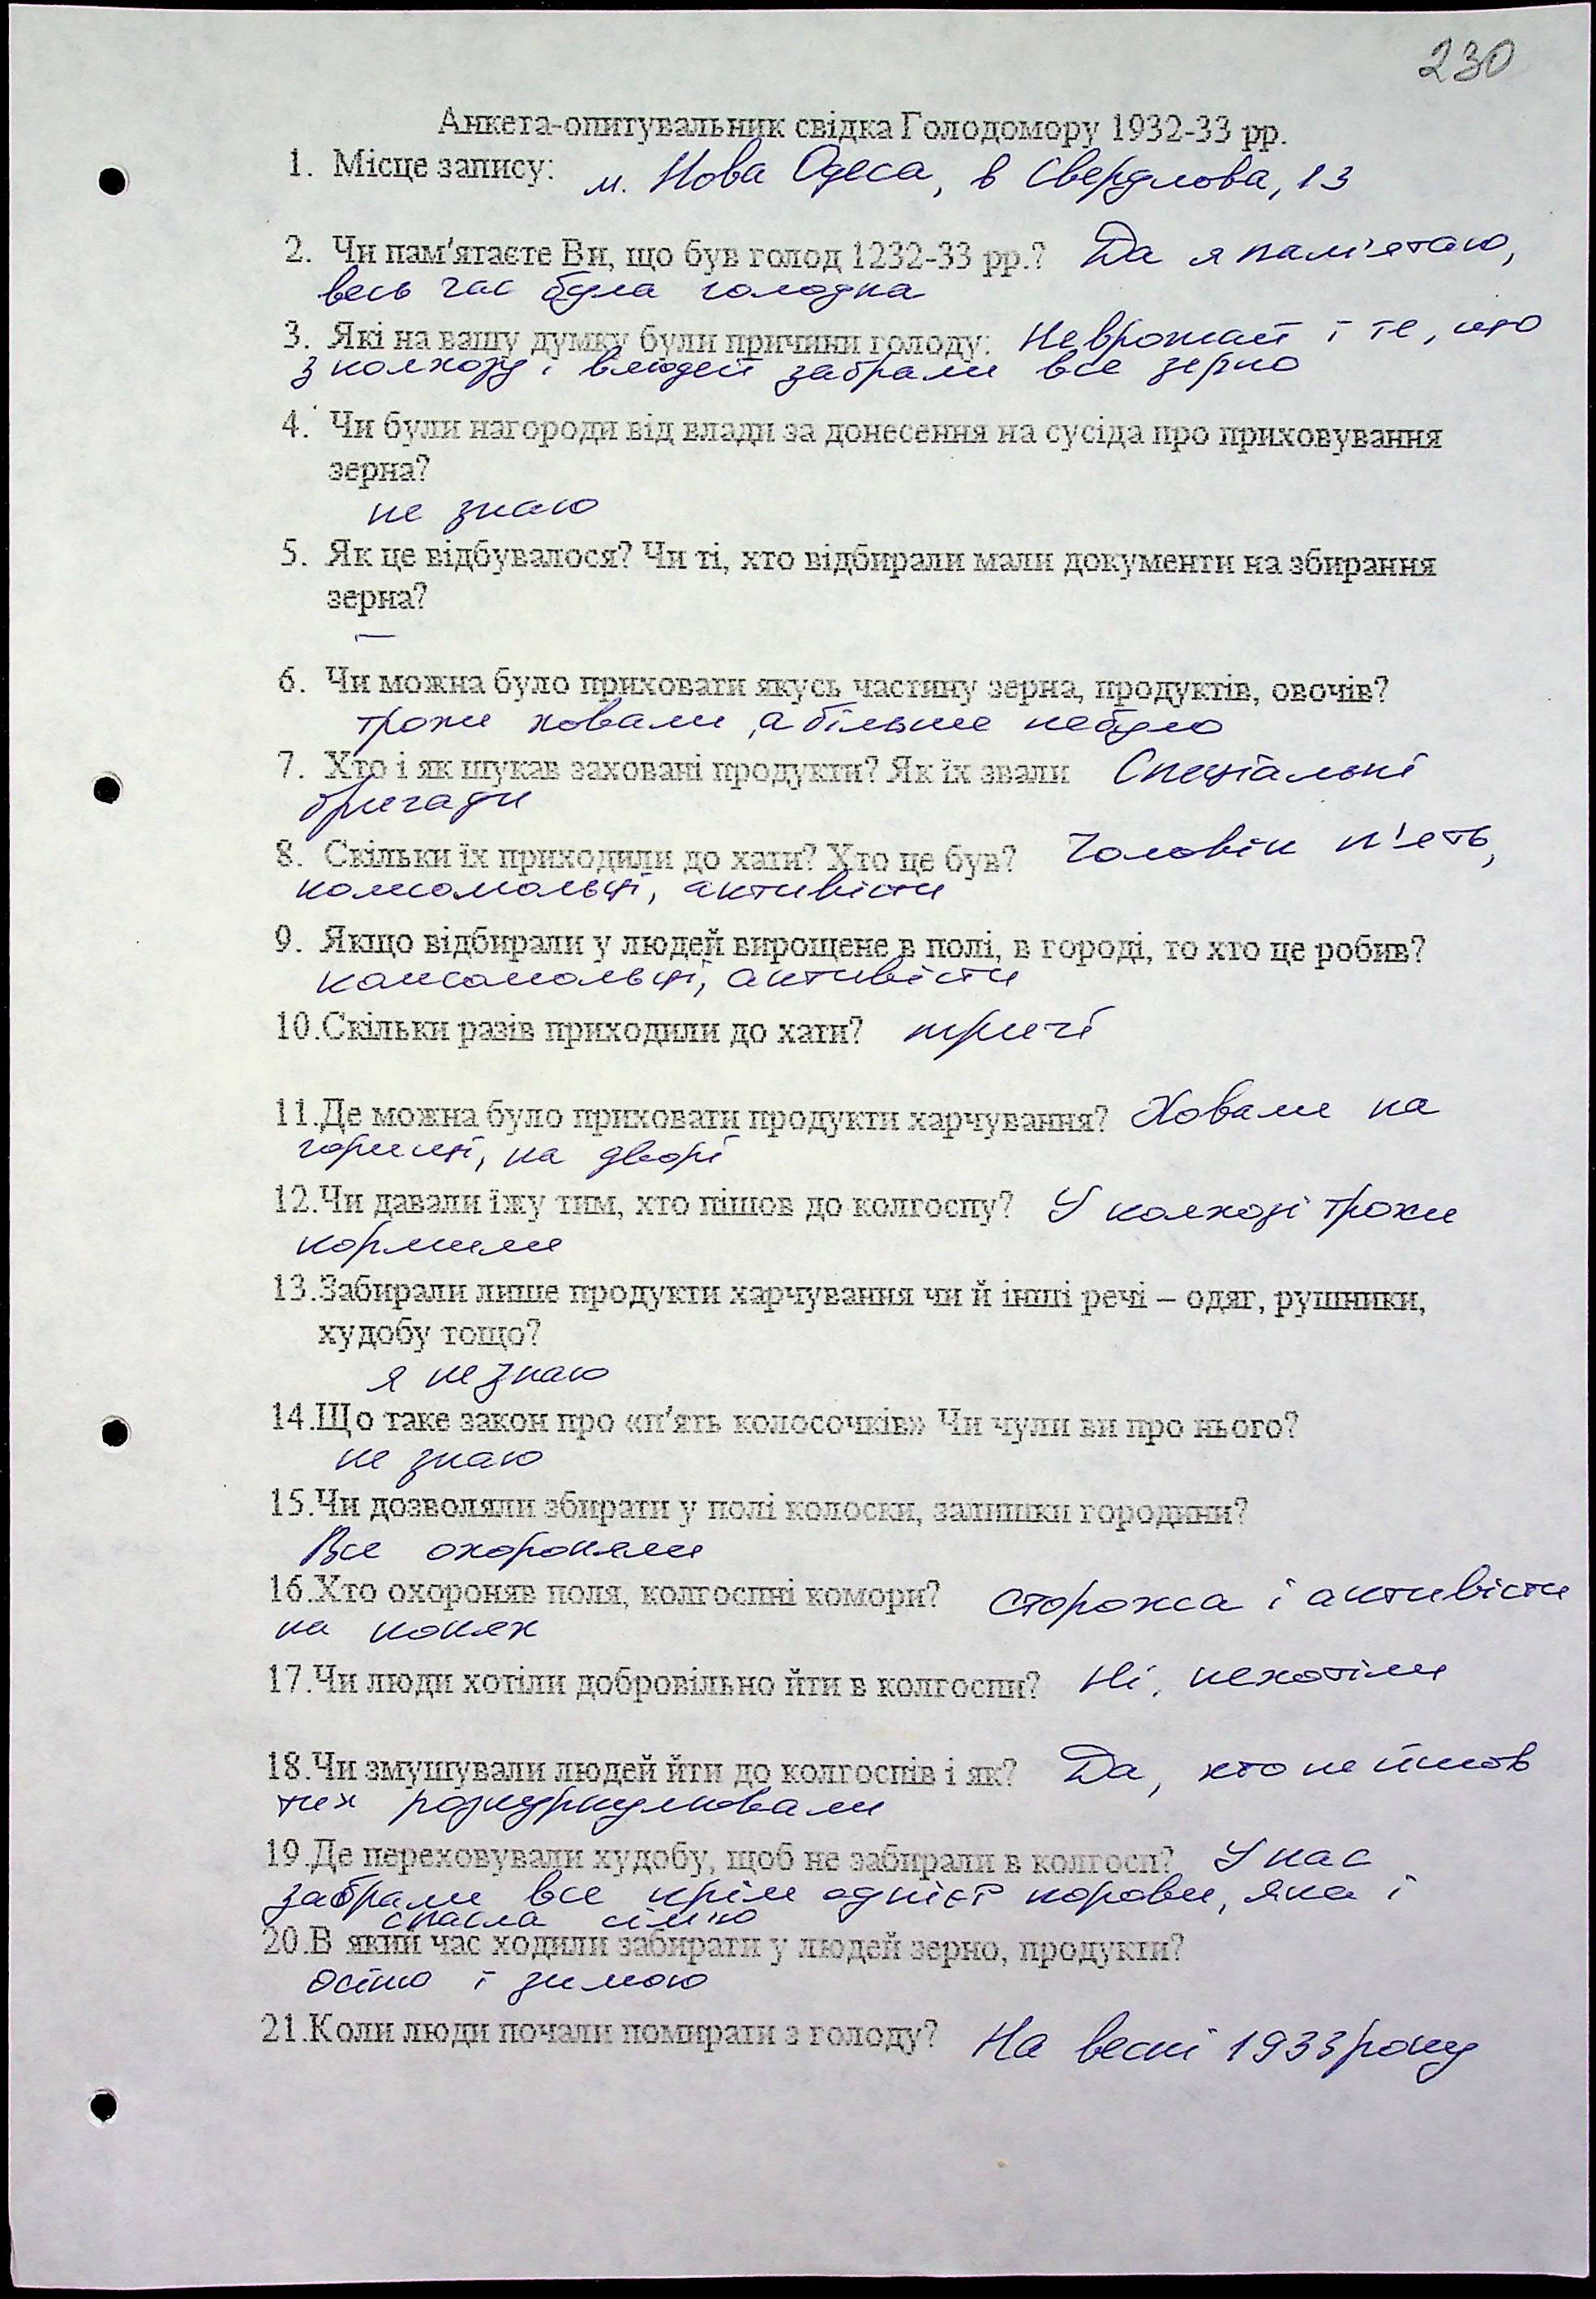 230
Анкета-опитувальник свідка Голодомору 1932-33 рр.
1. Місце запису: м. Нова Одеса, в Свердлова, 13
2. Чи пам'ятаєте Ви, що був голод 1232-33 рр.? Да я пам'ятаю,
весь час була голодна
3. Які на вашу думку були причини голоду: Неврожай і те, що
з колхозу і влюдей забрали все зерно
4. Чи були нагороди від влади за донесення на сусіда про приховування
зерна?
не знаю
5. Як це відбувалося? Чи ті, хто відбирали мали документи на збирання
зерна?
—
6. Чи можна було приховати якусь частину зерна, продуктів, овочів?
трохи ховали, а більше небуло
7. Хто і як шукав заховані продукти? Як їх звали Спеціальні
бригади
8. Скільки їх приходили до хати? Хто це був? Чоловік п'ять,
комсомольці, активісти
9. Якщо відбирали у людей вирощене в полі, в городі, то хто це робив?
комсомольці, активісти
10.Скільки разів приходили до хати? тричі
11.Де можна було приховати продукти харчування? Ховали на
горищі, на дворі
12.Чи давали їжу тим, хто пішов до колгоспу? У колхозі трохи
кормили
13.Забирали лише продукти харчування чи й інші речі – одяг, рушники,
худобу тощо?
я незнаю
14.Що таке закон про «п'ять колосочків» Чи чули ви про нього?
не знаю
15.Чи дозволяли збирати у полі колоски, залишки городини?
Все охороняли
16.Хто охороняв поля, колгоспні комори? Сторожа і активісти
на конях
17.Чи люди хотіли добровільно йти в колгоспи? Ні, нехотіли
18.Чи змушували людей йти до колгоспів і як? Да, хто не йшов
тих розкуркулювали
19.Де переховували худобу, щоб не забирали в колгосп? У нас
забрали все крім однієї корови, яка і
спасла сім'ю
20.В який час ходили забирати у людей зерно, продукти?
осіню і зимою
21.Коли люди почали помирати з голоду? На весні 1933 року